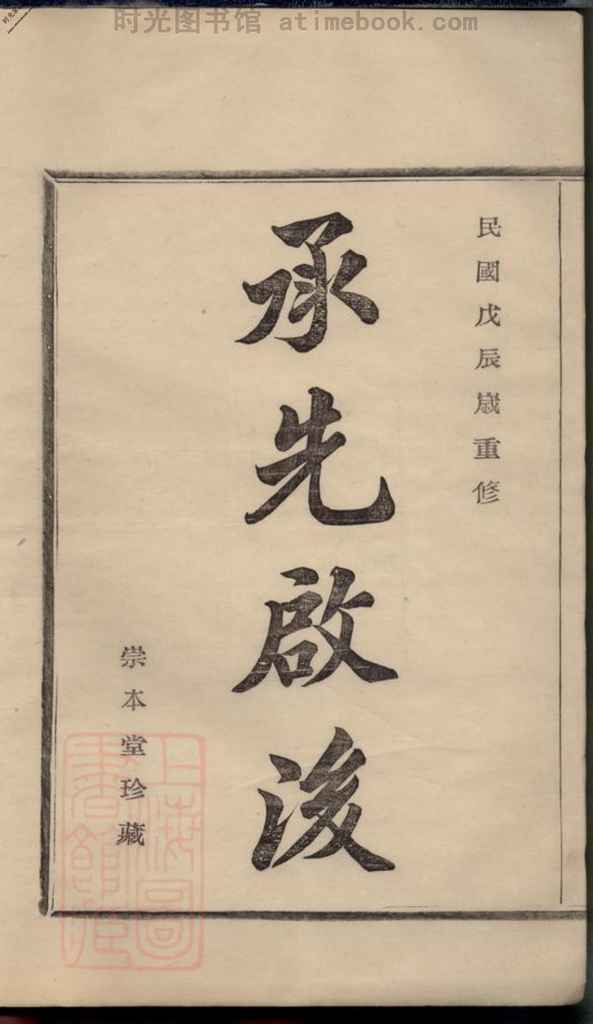 时光图书馆 atimebook.com
民國戊辰歲重修
承先啟後
崇本堂珍藏
上海圖
書館藏